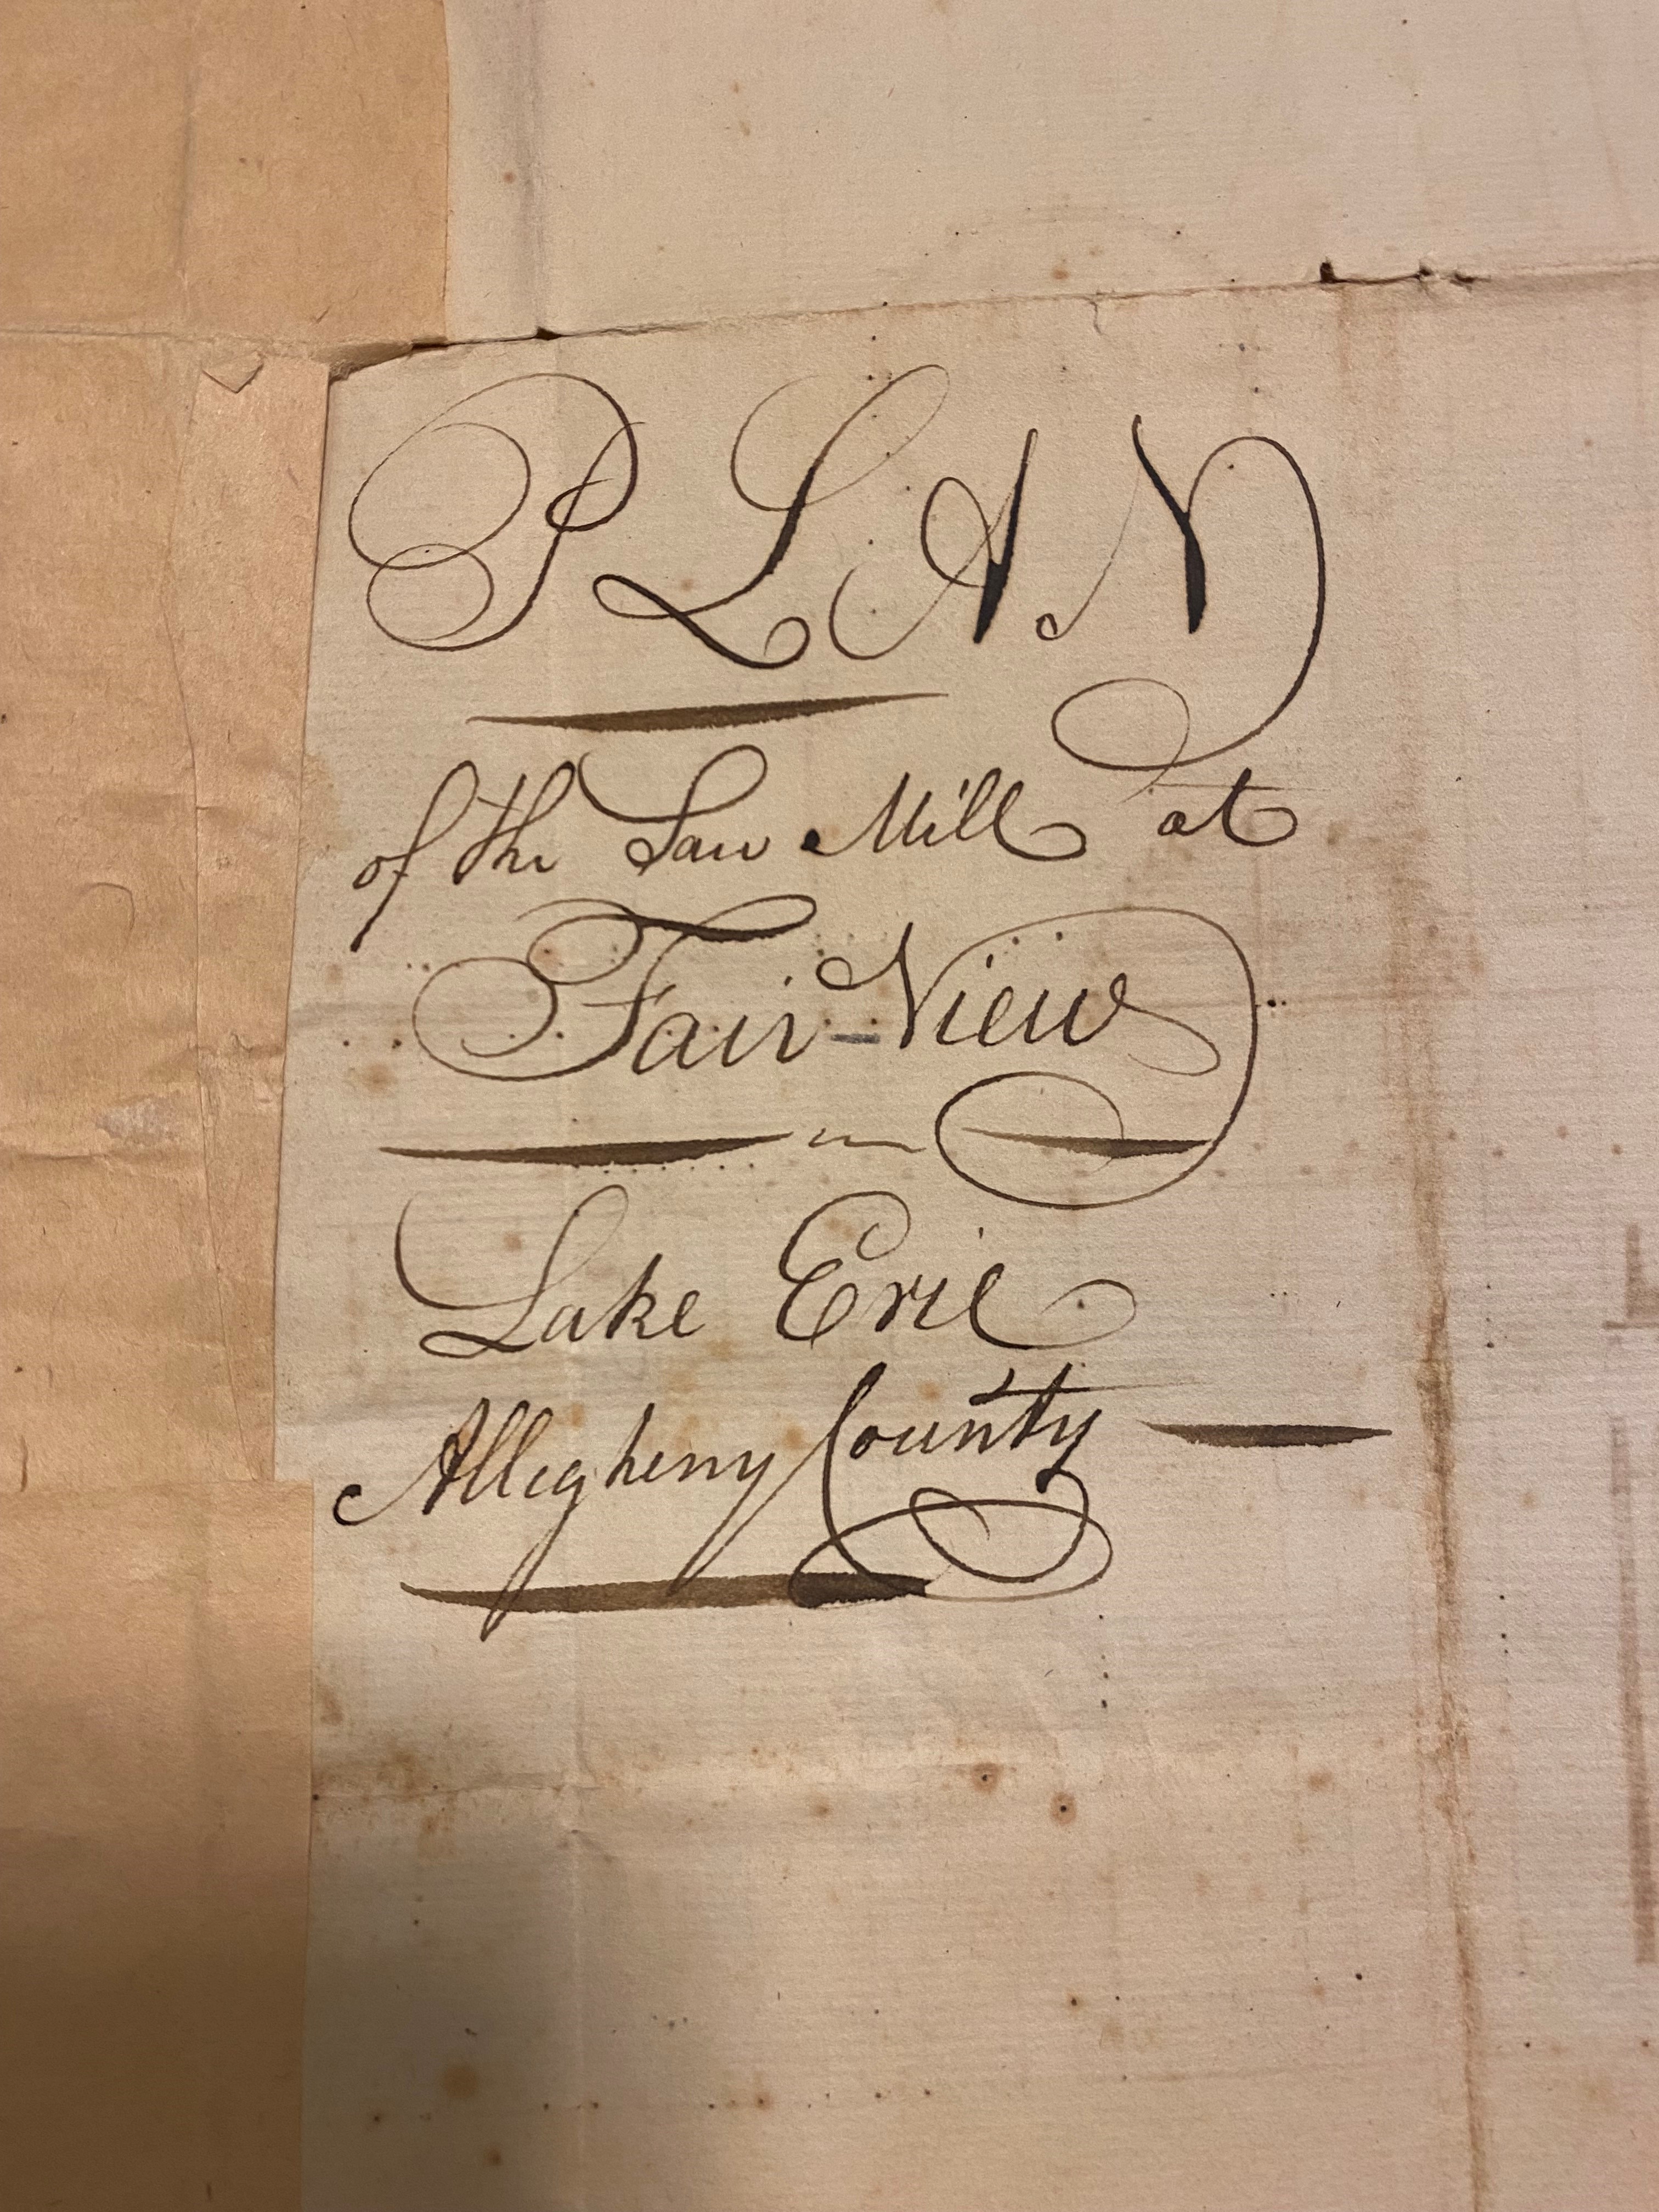 PLAN
of the Saw Mill at
Fair-View
on
Lake Erie
Allegheny County